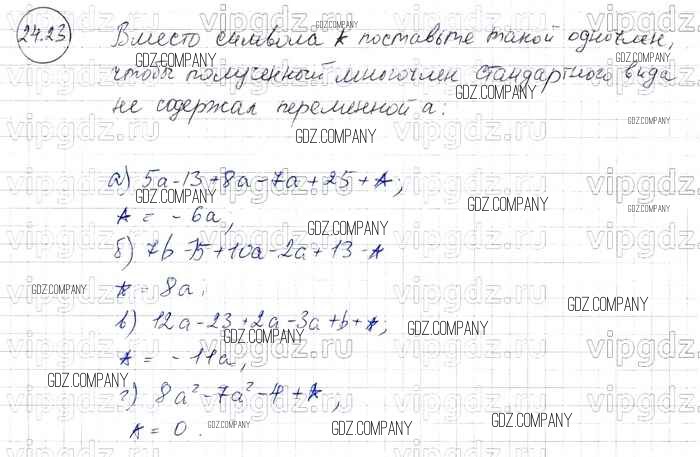 24.23 Вместо символа * поставьте такой одночлен,
чтобы полученный многочлен стандартного вида
не содержал переменной а:
а) 5a-13+8a-7a+25+*;
* = -6a,
б) 7b-15+10a-2a+13-*
* = 8a;
в) 12a-23+2a-3a+b+*;
* = -11a,
г) 8a²-7a²-4+*;
* = 0.
GDZ.COMPANY
vipgdz.ru